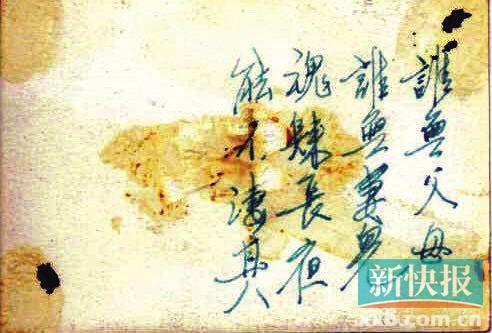 誰無父母
誰無妻兒
魂長夜
能不凄其
新快报
xkb.com.cn